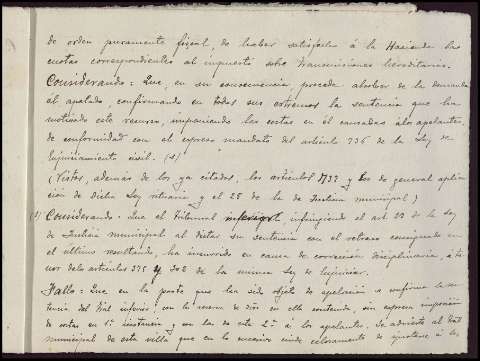 de orden puramente fiscal, de haber satisfecho á la Hacienda las
cuotas correspondientes al impuesto sobre transmisiones hereditarias.
Considerando: Que, en su consecuencia, procede absolver de la demanda
al apelado, confirmando en todos sus extremos la sentencia que ha
motivado este recurso, imponiendo las costas en él causadas á los apelantes,
de conformidad con el expreso mandato del artículo 736 de la Ley de
Enjuiciamiento civil. (1)
(Vistos, además de los ya citados, los artículos 1733 y los de general aplica-
ción de dicha Ley rituaria y el 25 de la de Justicia municipal)
(1) Considerando - Que el Tribunal inferior, infringiendo el art. 22 de la Ley
de Justicia municipal al dictar su sentencia con el retraso consignado en
el último resultando, ha incurrido en causa de corrección disciplinaria, á te-
nor de los artículos 375 y 302 de la misma Ley de Enjuiciar.
Fallo: Que en la parte que ha sido objeto de apelación confirmo la sen-
tencia del Tral inferior, con la reserva de dros en ella contenida, sin expresa imposición
de costas en 1ª instancia y con las de esta 2ª á los apelantes. Se advierte al Tral
municipal de esta villa que en lo sucesivo cuide celosamente de ajustarse á los